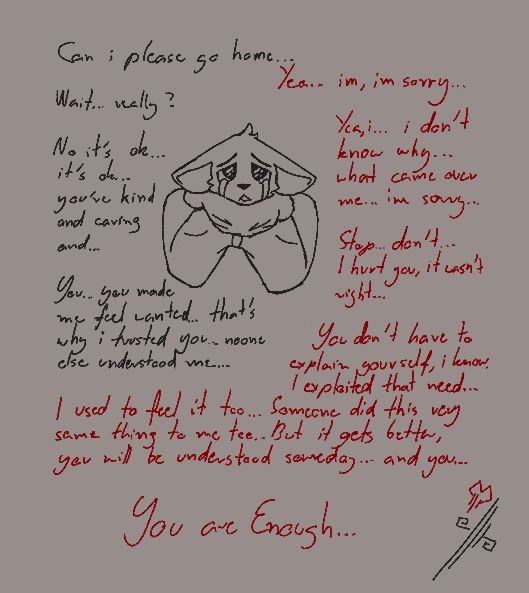 Can i please go home...
Yea... im, im sorry...
Wait... really?
Yea, i... i don't
know why...
what came over
me... im sorry...
No it's ok...
it's ok...
you've kind
and caring
and...
Stop... don't...
I hurt you, it wasn't
right...
You.. you made
me feel wanted.. that's
why i trusted you.. noone
else understood me...
You don't have to
explain yourself, i know.
I exploited that need...
I used to feel it too... Someone did this very
same thing to me too.. But it gets better,
you will be understood someday... and you...
You are Enough...